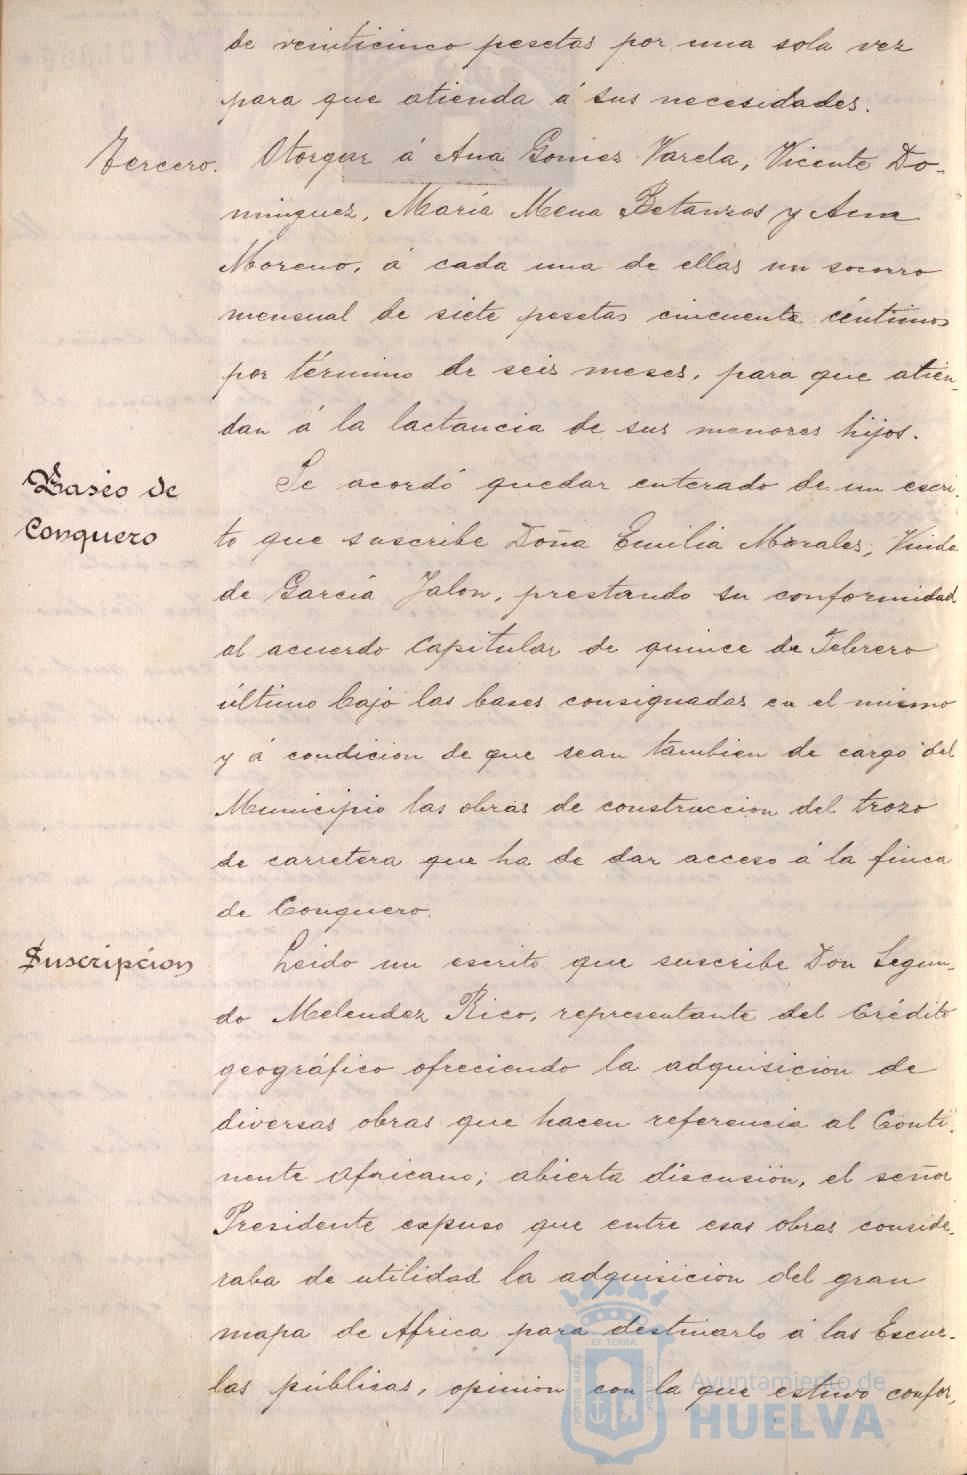 de veinticinco pesetas por una sola vez
para que atienda á sus necesidades.
Tercero. Otorgar á Ana Gomez Varela, Vicente Do-
minguez, María Mena Betanzos y Ana
Moreno, á cada una de ellas un socorro
mensual de siete pesetas cincuenta céntimos
por término de seis meses, para que atien-
dan á la lactancia de sus menores hijos.
Paseo de
Conquero
Se acordó quedar enterado de un escri-
to que suscribe Doña Emilia Morales, Viuda
de García Jalon, prestando su conformidad
al acuerdo Capitular de quince de Febrero
último bajo las bases consignadas en el mismo
y á condicion de que sean tambien de cargo del
Municipio las obras de construccion del trozo
de carretera que ha de dar acceso á la finca
de Conquero.
Suscripcion
Leido un escrito que suscribe Don Segun-
do Melendez Rico, representante del Crédito
geográfico ofreciendo la adquisicion de
diversas obras que hacen referencia al Conti-
nente Africano; abierta discusion, el señor
Presidente expuso que entre esas obras conside-
raba de utilidad la adquisicion del gran
mapa de Africa para destinarlo á las Escue-
las públicas, opinion con la que estuvo confor-
PORTUS MARIS
ET TERRÆ
CUSTODIA
Ayuntamiento de
HUELVA